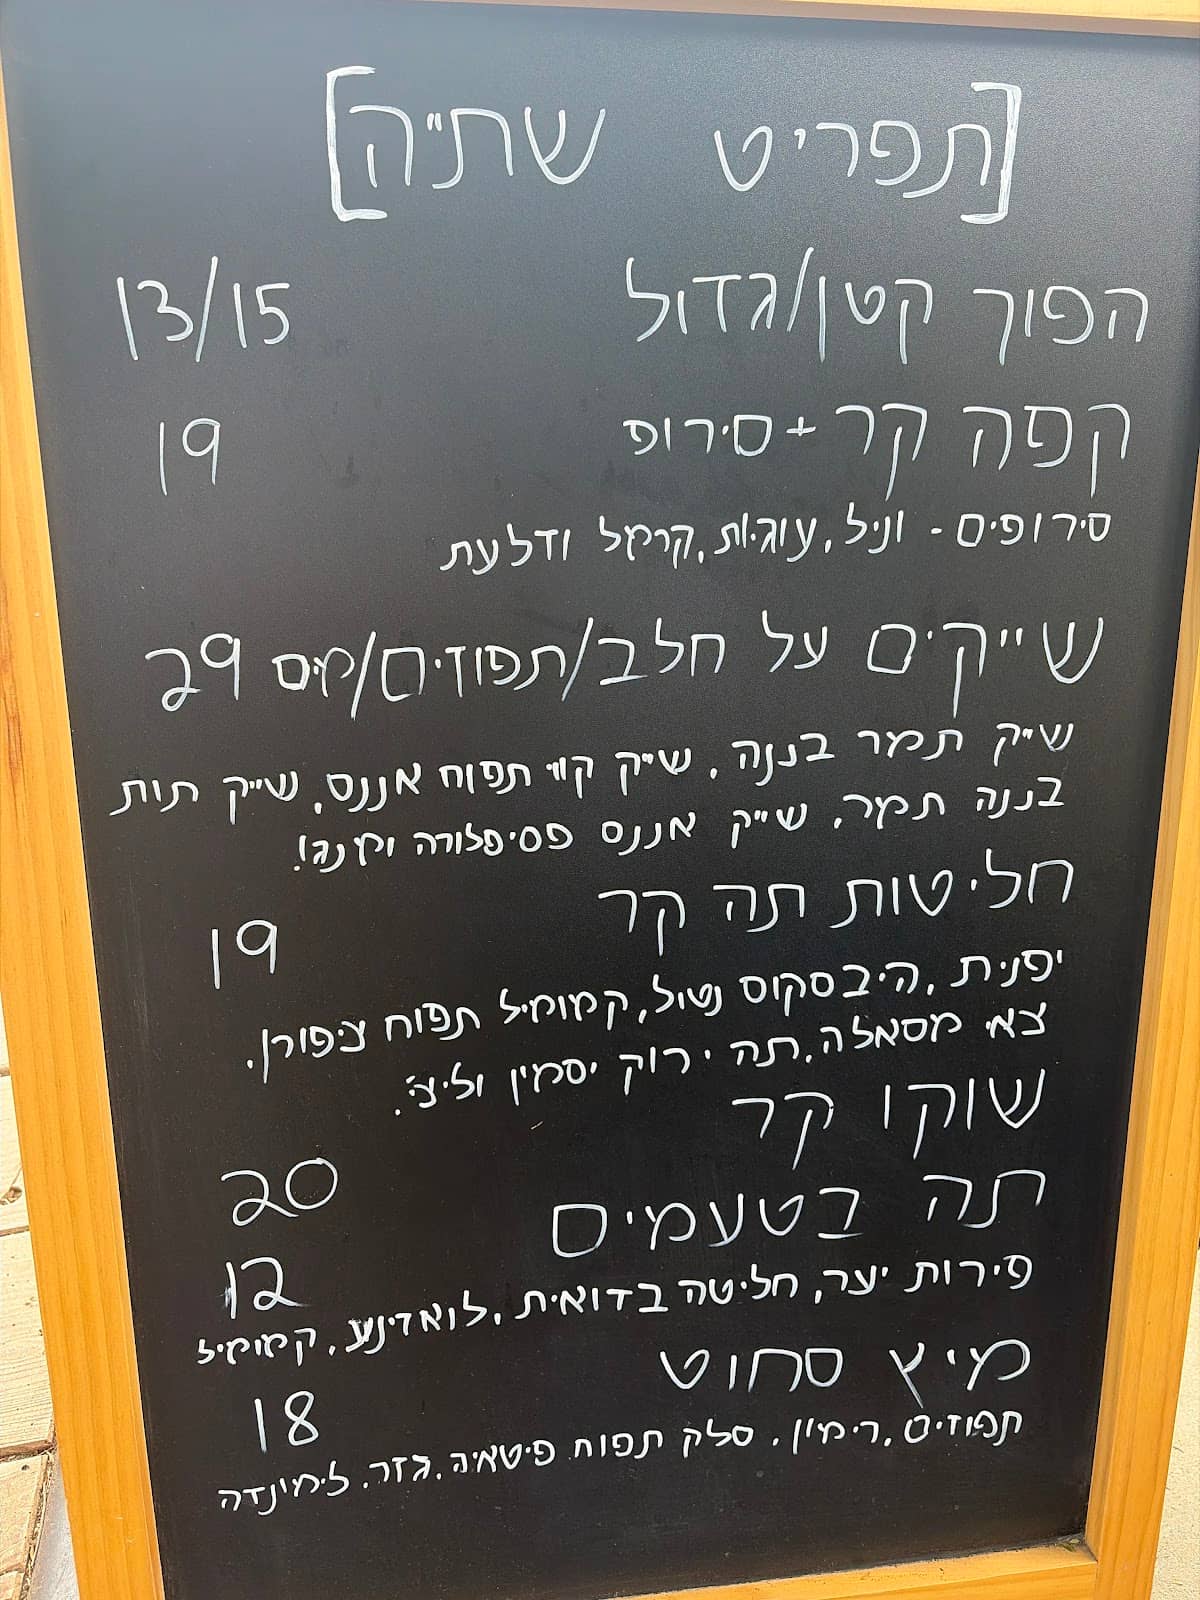 [תפריט שת"ה]
הפוך קטן/גדול 13/15
קפה קר + סירופ 19
סירופים - וניל, עוגיות, קרמל ודלעת
שייקים על חלב/תפוזים/מים 29
שייק תמר בננה, שייק קיווי תפוח אננס, שייק תות
בננה תמר, שייק אננס פסיפלורה ומנגו!
חליטות תה קר 19
יפנית, היביסקוס נטול, קמומיל תפוח ציפורן.
צאי מסאלה, תה ירוק יסמין וליצ'י.
שוקו קר 20
תה בטעמים 12
פירות יער, חליטה בדואית, לואדינע, קמומיל
מיץ סחוט 18
תפוזים, רימון, סלק תפוח פיטאיה, גזר, לימונדה